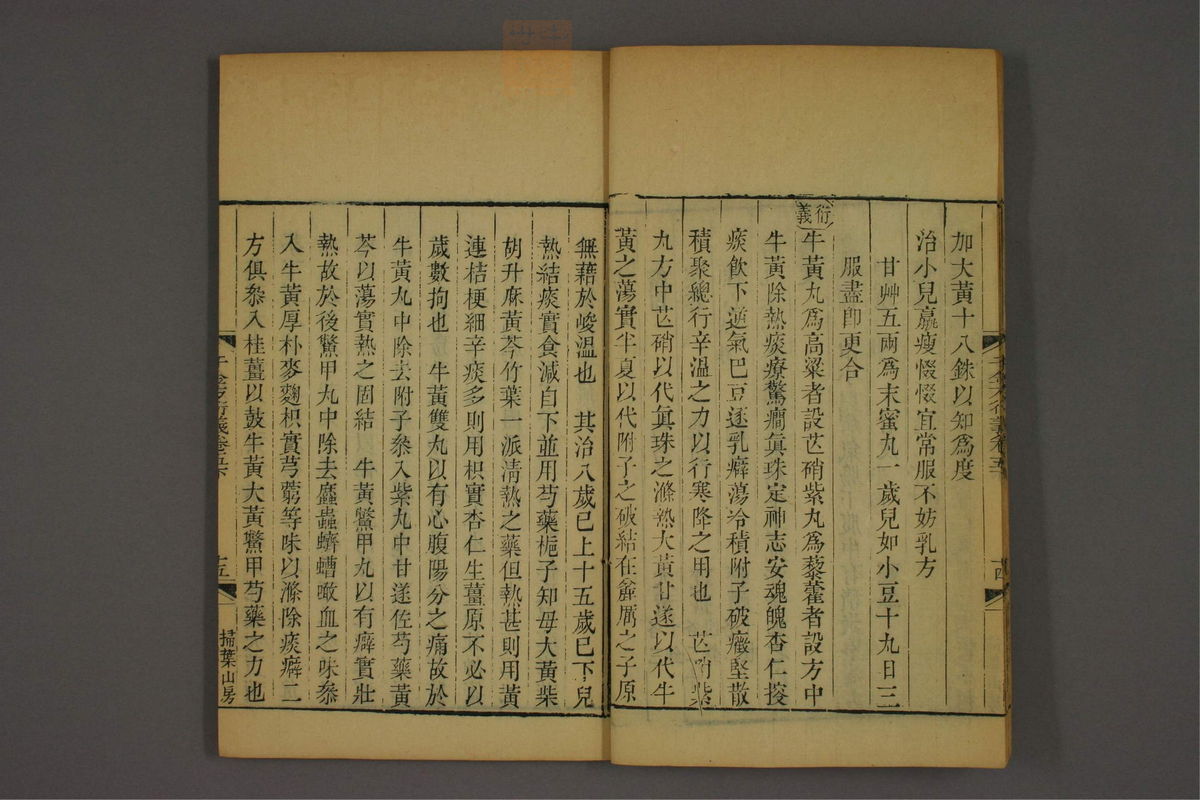 加大黃十八銖以知爲度
治小兒羸瘦惙惙宜常服不妨乳方
甘艸五兩爲末蜜丸一歲兒如小豆十九日三
服盡卽更合
衍義
牛黃丸爲高粱者設芒硝紫丸爲藜藿者設方中
牛黃除熱痰療驚癎眞珠定神志安魂魄杏仁搜
痰飮下逆氣巴豆逐乳癖蕩冷積附子破癥堅散
積聚總行辛溫之力以行寒降之用也　芒硝紫
丸方中芒硝以代眞珠之滌熱大黃甘遂以代牛
黃之蕩實半夏以代附子之破結在藜藿之子原
無藉於峻溫也　其治八歲已上十五歲已下兒
熱結痰實食減自下並用芍藥梔子知母大黃柴
胡升麻黃芩竹葉一派淸熱之藥但熱甚則用黃
連桔梗細辛痰多則用枳實杏仁生薑原不必以
歲數拘也　牛黃雙丸以有心腹陽分之痛故於
牛黃丸中除去附子叅入紫丸中甘遂佐芍藥黃
芩以蕩實熱之固結　牛黃鱉甲丸以有癖實壯
熱故於後鱉甲丸中除去䗪蟲蠐螬噉血之味叅
入牛黃厚朴麥麴枳實芎藭等味以滌除痰癖二
方俱叅入桂薑以鼓牛黃大黃鱉甲芍藥之力也
千金方衍義卷五
十五
掃葉山房